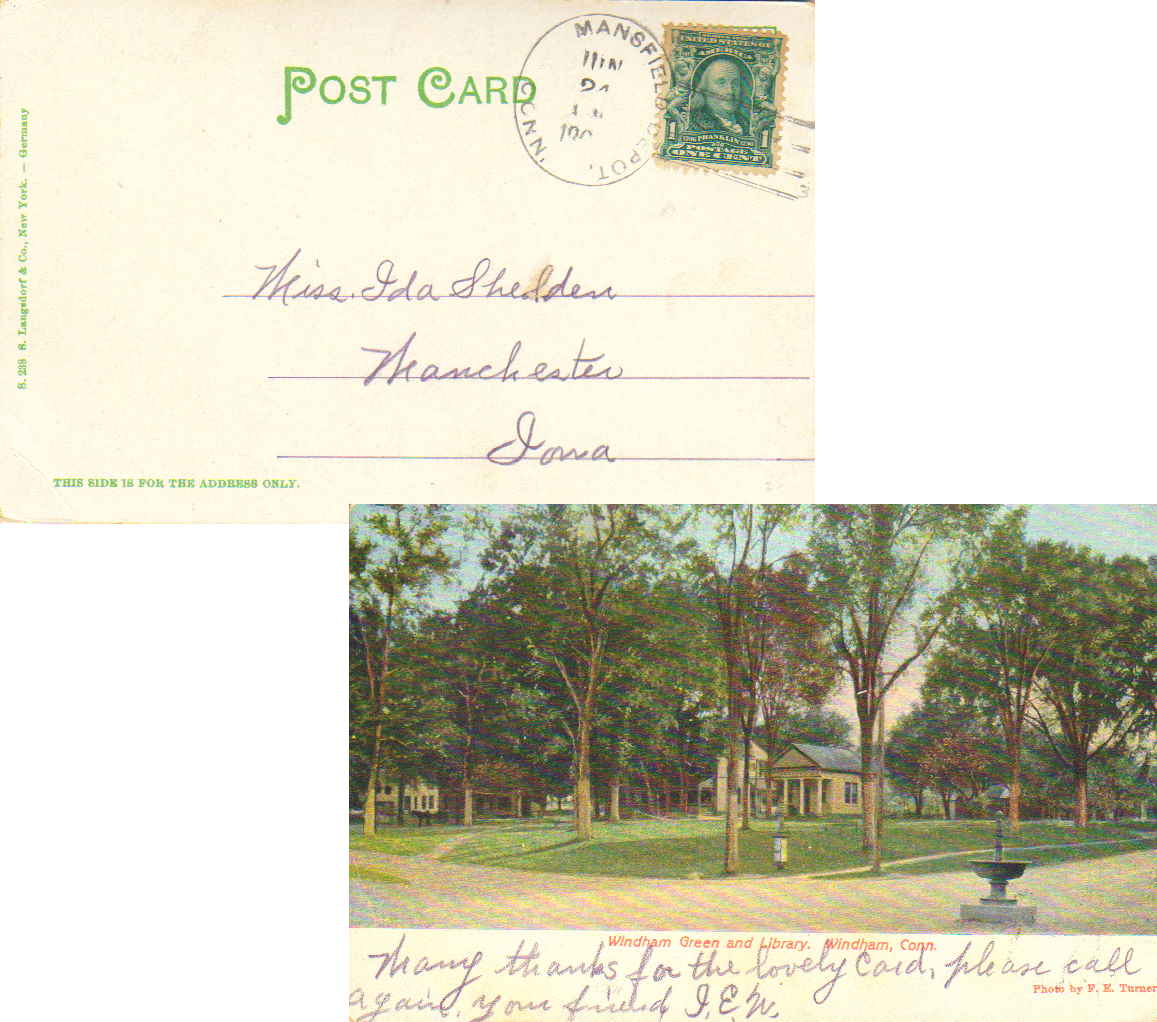 POST CARD
MANSFIELD DEPOT,
CONN.
UNITED STATES OF
AMERICA
1 FRANKLIN 1
POSTAGE
ONE CENT
S. 238 S. Langsdorf & Co., New York. — Germany
Miss. Ida Shelden
Manchester
Iowa
THIS SIDE IS FOR THE ADDRESS ONLY.
Windham Green and Library. Windham, Conn.
Many thanks for the lovely Card, please call
Photo by F. E. Turner
again, your friend I.E.W.